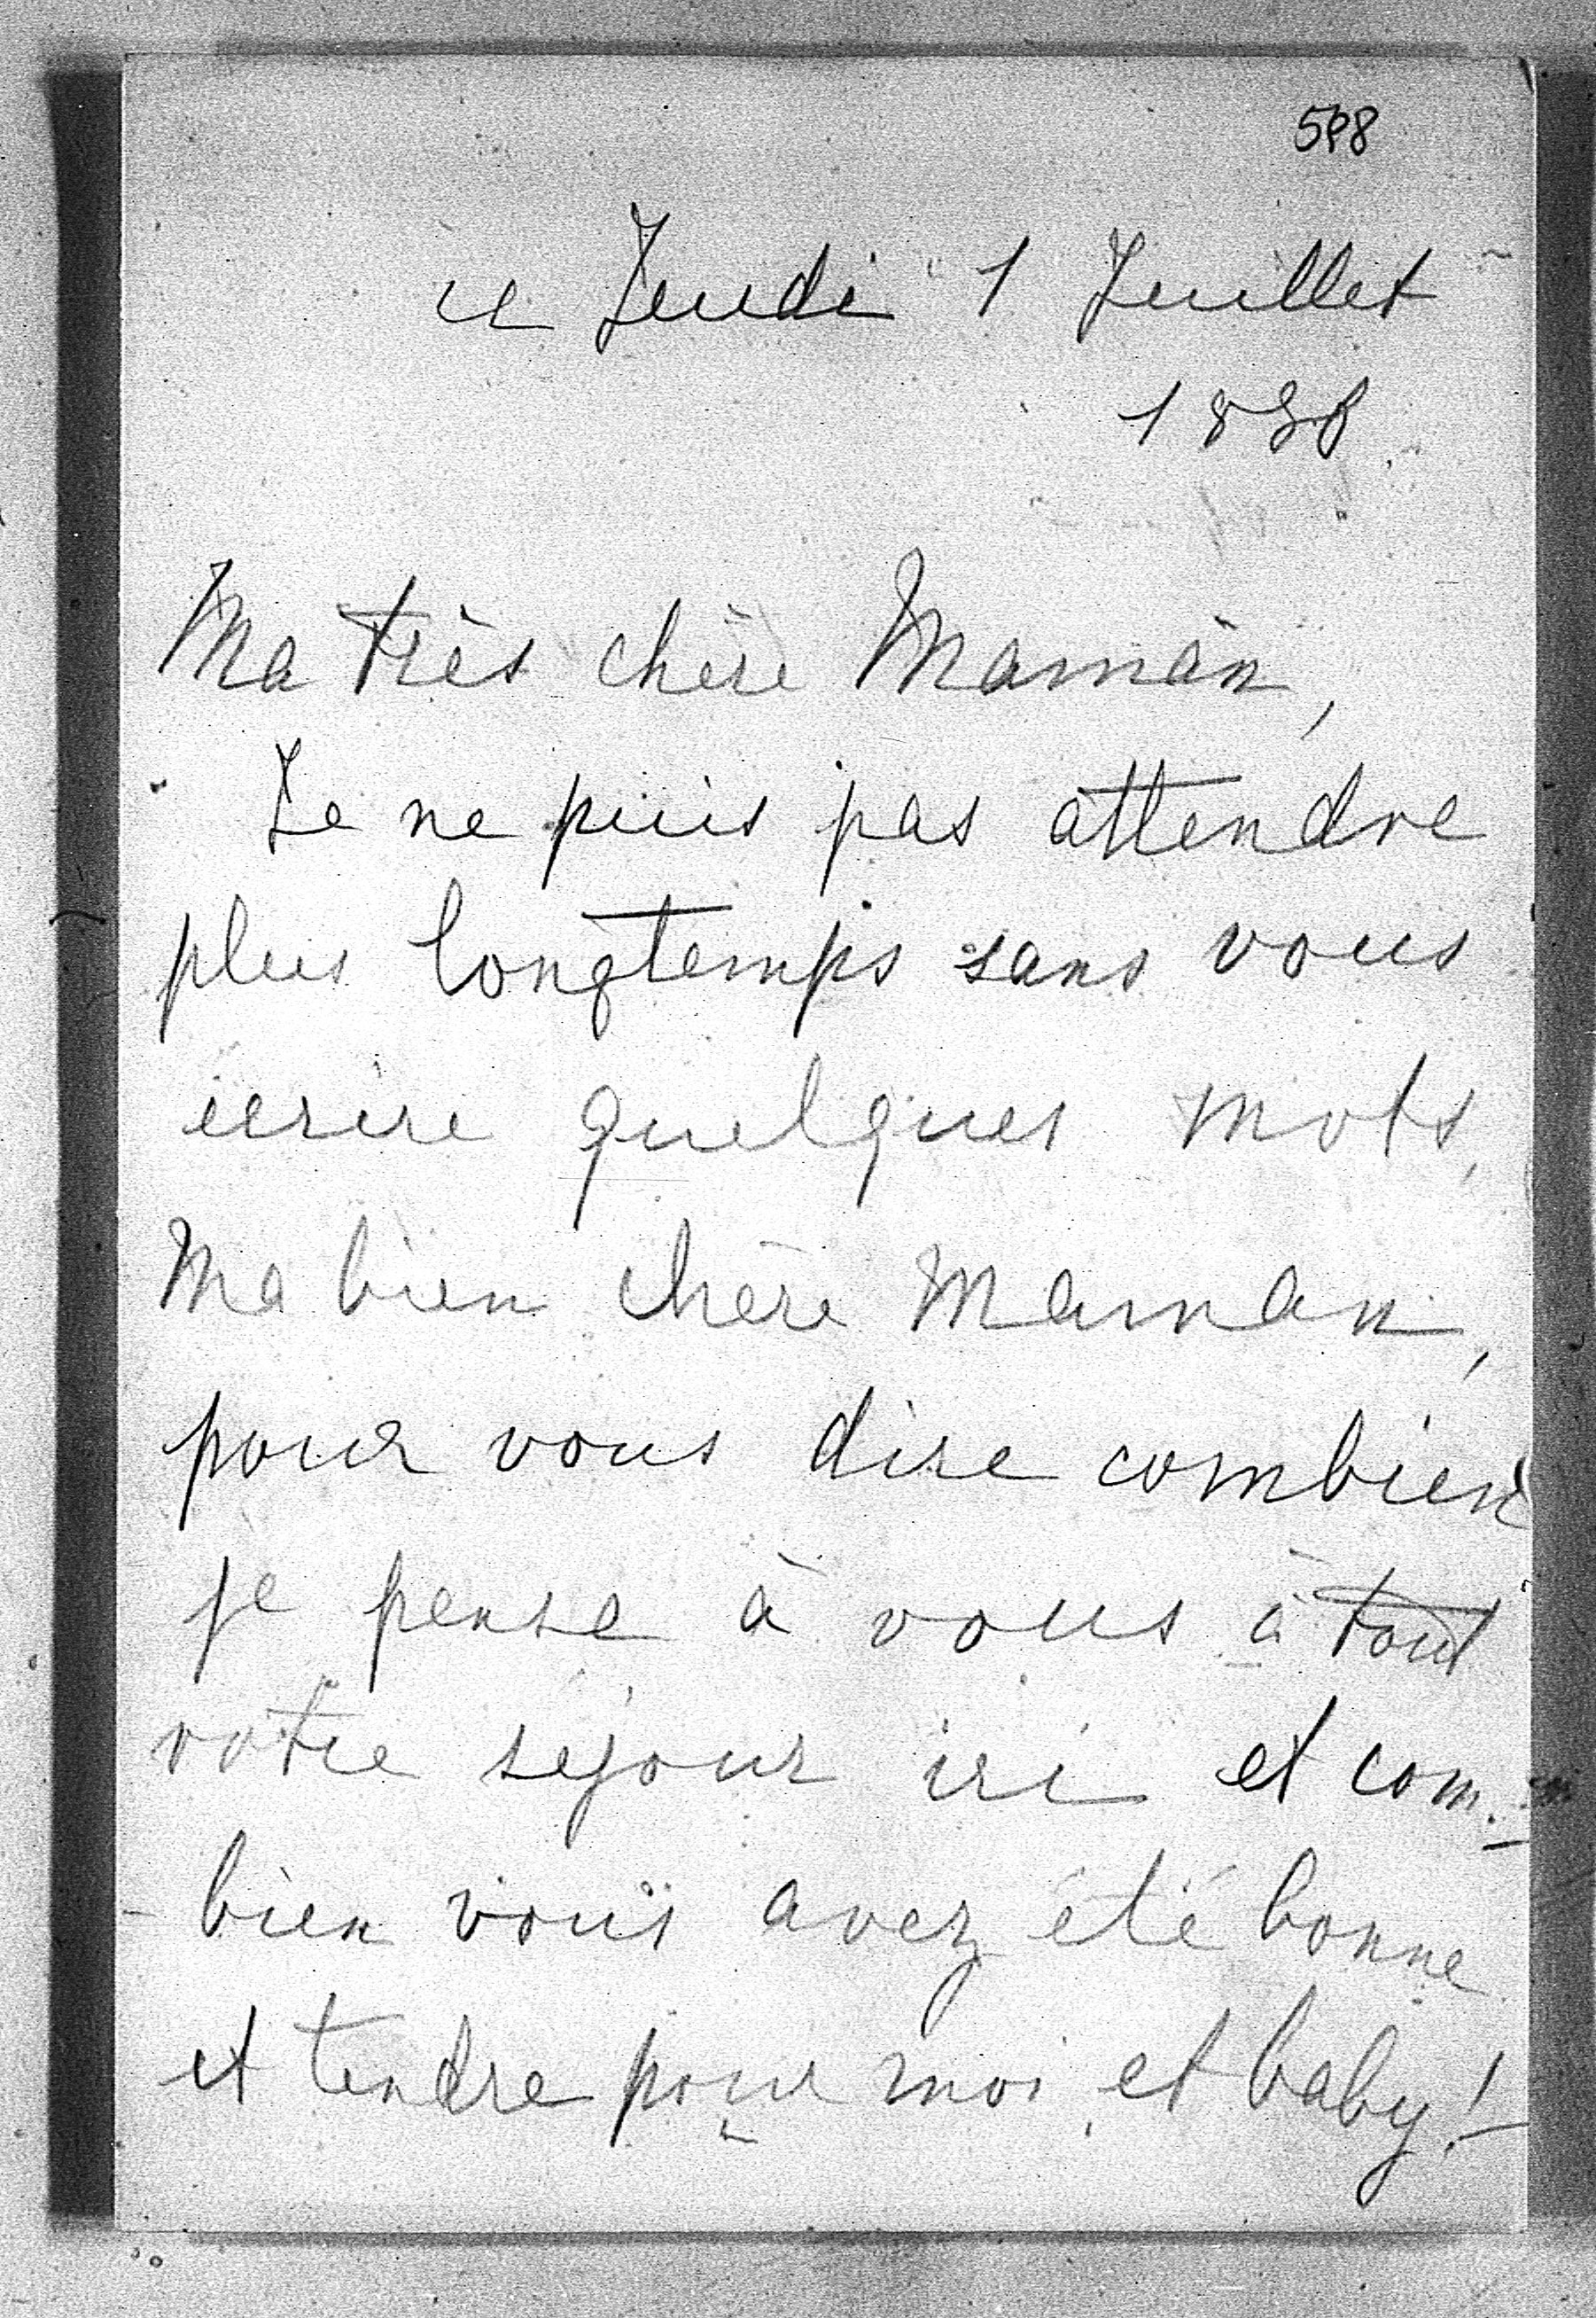 ce Jeudi 1 Juillet
Ma très chère Maman,
Je ne puis pas attendre
plus longtemps sans vous
écrire quelques mots,
Ma bien chère Maman,
pour vous dire combien
je pense à vous à tout
votre séjour ici et com-
-bien vous avez été bonne
et tendre pour moi et baby! -